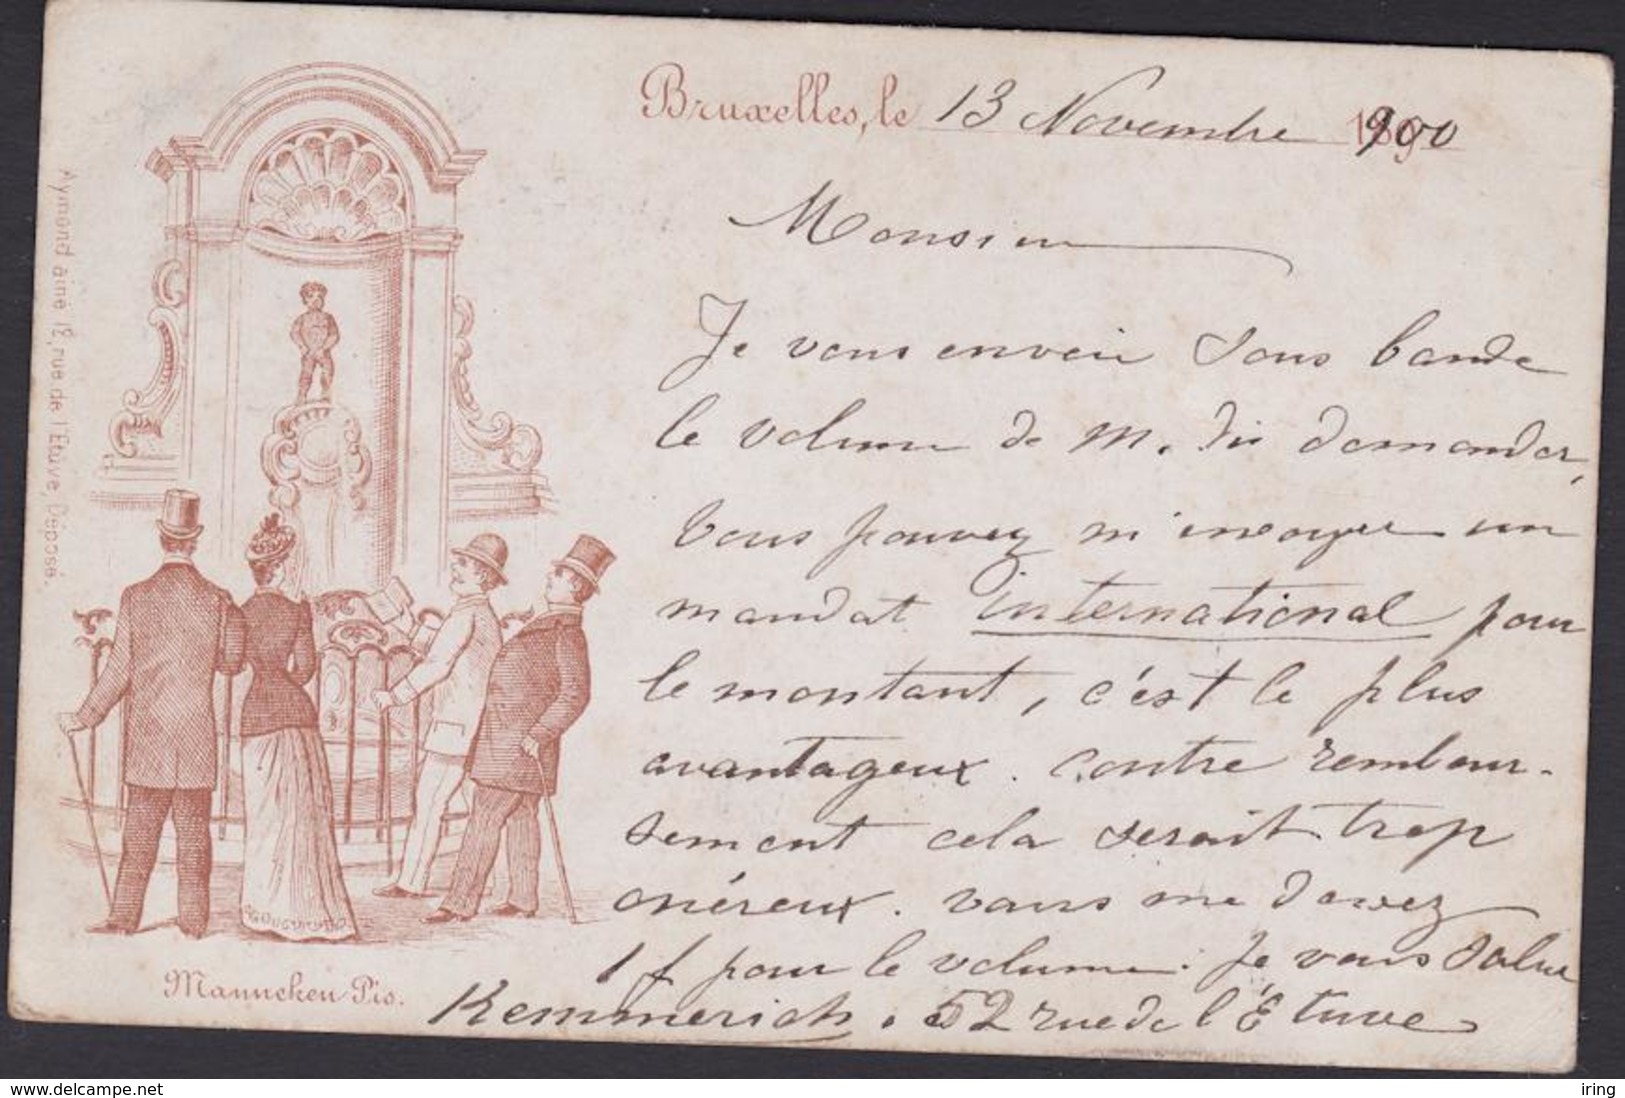 Bruxelles, le 13 Novembre 1900
Monsieur
Je vous envoie sous bande
le volume de M. demandez,
Vous pouvez m'envoyer un
mandat international pour
le montant, c'est le plus
avantageux. Contre rembour-
sement cela serait trop
onéreux. vous me devez
1 f pour le volume. Je vous salue
Kemmerich, 52 rue de l'Étuve
Aymond ainé 18, rue de l'Etuve, Déposé.
Manneken Pis.
www.delcampe.net
iring